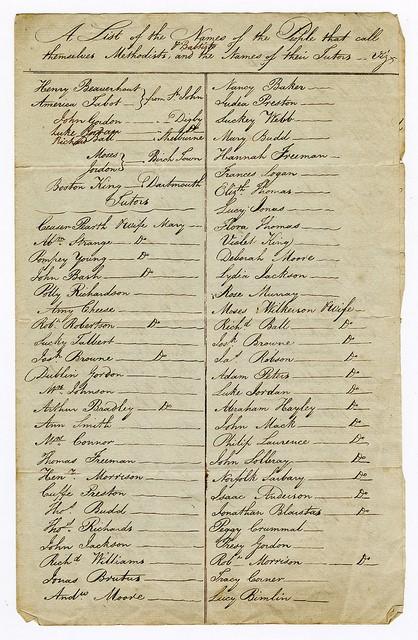 A List of the Names of the People that call
themselves Methodists & Baptists and the Names of their Tutors Viz
Henry Beauerhout
America Talbot } from St John
John Gordon - - Digby
Luke Jordan
Richd Ball - Shelburne
Moses
Jordon } Birch Town
Boston King - Dartmouth
Tutors
Ceasar Pearth & Wife Mary
Abm Strange Do
Pompey Young Do
John Bash Do
Polly Richardson
Amy Cheese
Robt Robertson Do
Lucky Talbert
Josh Browne Do
Dublin Gordon
Wm Johnson
Arthur Bradley Do
Ann Smith
Wm Connor
Thomas Freeman
Heny Morrison
Cuffe Preston
Thos Budd
Thos Richards
John Jackson
Richd Williams
Jonas Brutus
Andw Moore
Nancy Baker
Judea Preston
Suckey Webb
Mary Budd
Hannah Freeman
Frances Logan
Elizth Thomas
Lucy Jonas
Flora Thomas
Violet King
Deborah Moore
Lydia Jackson
Rose Murray
Moses Wilkerson & Wife
Richd Ball Do
Josh Browne Do
Jas Robson Do
Adam Peters Do
Luke Jordan Do
Abraham Hayley Do
John Mack Do
Philip Laurence Do
John Solleray Do
Norfolk Sarbary Do
Isaac Anderson Do
Jonathan Do
Peggy Crummal
Gordon
Robt Morrison Do
Tracy Corner
Lucy Bimlin